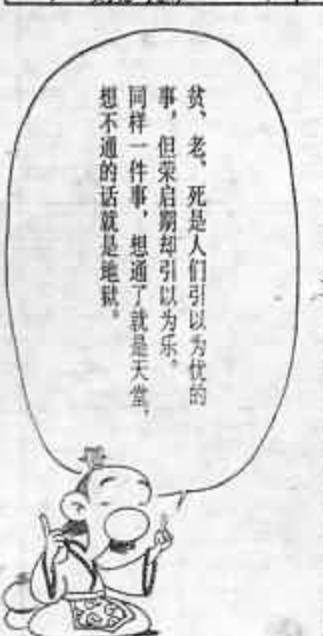 贫、老、死是人们引以为忧的
事，但荣启期却引以为乐。
同样一件事，想通了就是天堂，
想不通的话就是地狱。